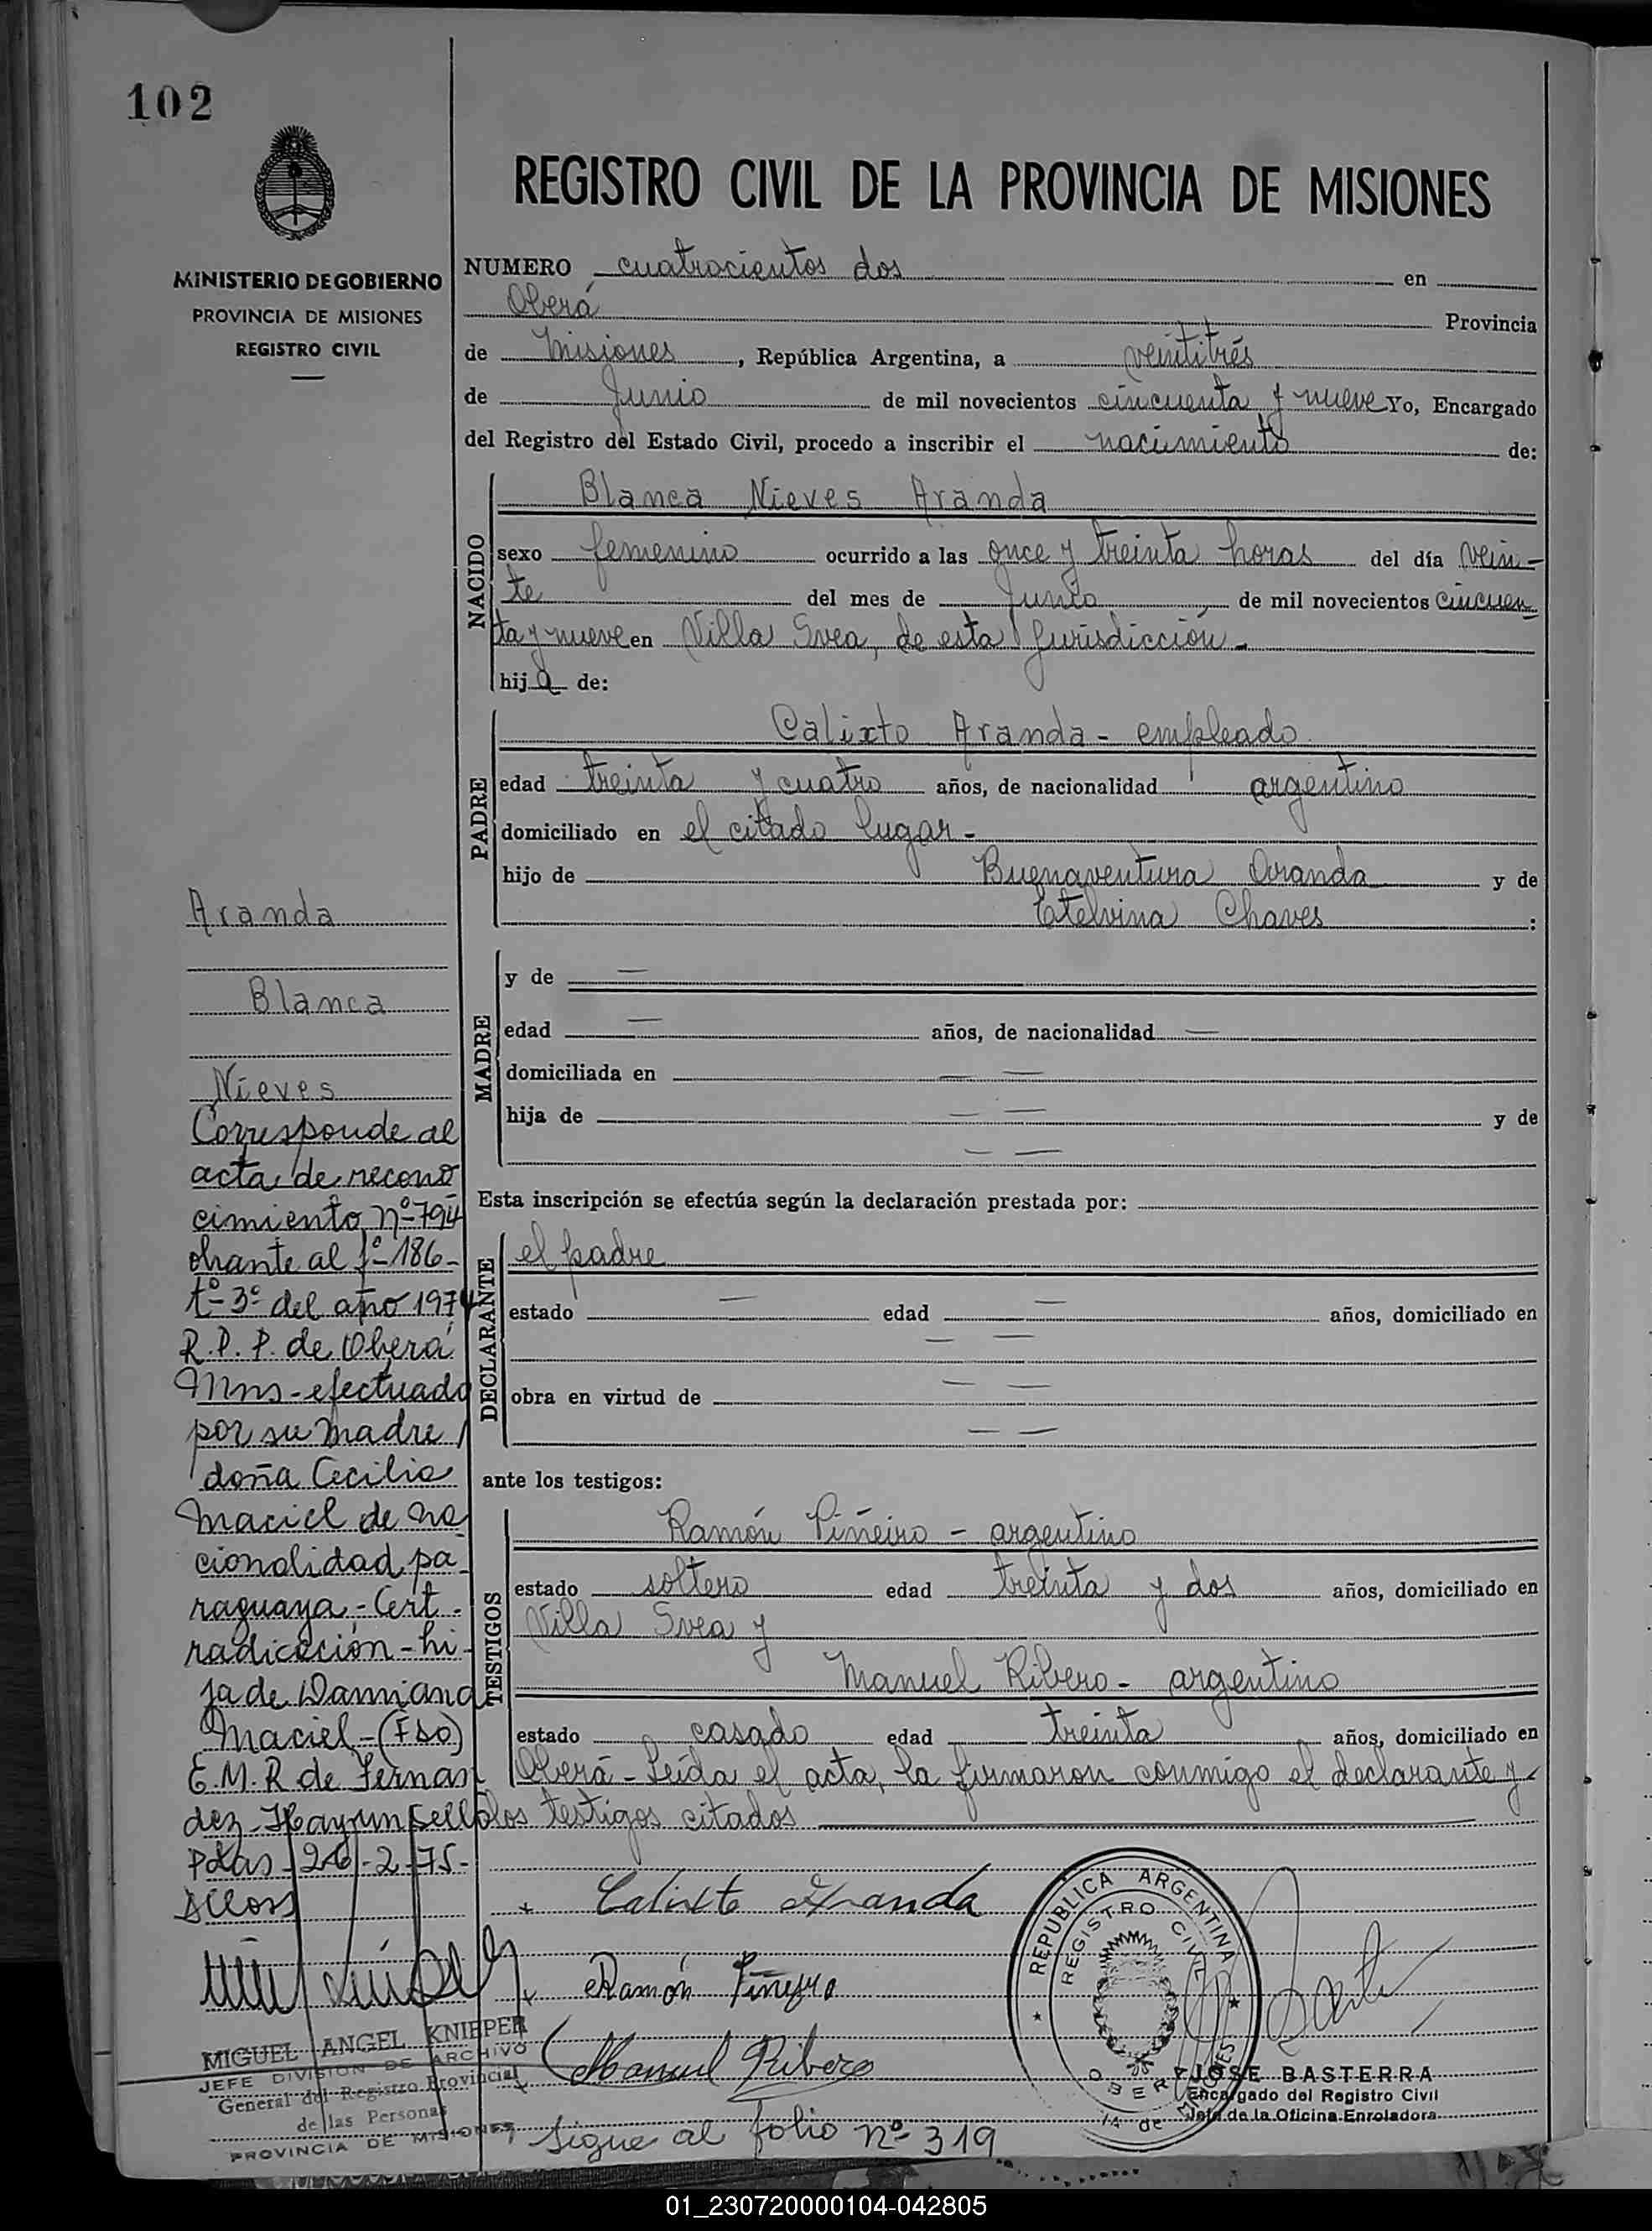 102
MINISTERIO DE GOBIERNO
PROVINCIA DE MISIONES
REGISTRO CIVIL
REGISTRO CIVIL DE LA PROVINCIA DE MISIONES
NUMERO cuatrocientos dos en
Oberá Provincia
de Misiones, República Argentina, a veintitrés
de Junio de mil novecientos cincuenta y nueve Yo, Encargado
del Registro del Estado Civil, procedo a inscribir el nacimiento de:
NACIDO
Blanca Nieves Aranda
sexo femenino ocurrido a las once y treinta horas del día vein-
te del mes de Junio, de mil novecientos cincuen
ta y nueve en Villa Svea, de esta Jurisdicción.-
hija de:
PADRE
Calixto Aranda - empleado
edad treinta y cuatro años, de nacionalidad argentino
domiciliado en el citado lugar -
hijo de Buenaventura Aranda y de
Etelvina Chaves :
MADRE
y de —
edad — años, de nacionalidad —
domiciliada en — —
hija de — — y de
— —
Esta inscripción se efectúa según la declaración prestada por:
DECLARANTE
el padre
estado — edad — años, domiciliado en
— —
obra en virtud de — —
— —
ante los testigos:
TESTIGOS
Ramón Piñeiro - argentino
estado soltero edad treinta y dos años, domiciliado en
Villa Svea y
Manuel Ribero - argentino
estado casado edad treinta años, domiciliado en
Oberá - Leída el acta, la firmaron conmigo el declarante y
los testigos citados
Calixto Aranda
Ramón Piñeyro
Manuel Ribero
Sigue al folio nº 319
REPUBLICA ARGENTINA
REGISTRO CIVIL
OBERA
JOSE BASTERRA
Encargado del Registro Civil
Jefe de la Oficina Enroladora
Aranda
Blanca
Nieves
Corresponde al
acta de recono
cimiento nº 794
obrante al fº 186-
tº 3º del año 1974
R.P.P. de Oberá
Mns - efectuado
por su madre
doña Cecilia
Maciel de na
cionalidad pa-
raguaya - Cert.
radicación - hi-
ja de Damiana
Maciel - (Fdo)
E.M.R. de Fernan
dez - Hay un sello
Pdas - 26-2-75-
MIGUEL ANGEL KNIEPER
JEFE DIVISION DE ARCHIVO
General del Registro Provincial
de las Personas
PROVINCIA DE MISIONES
01_230720000104-042805